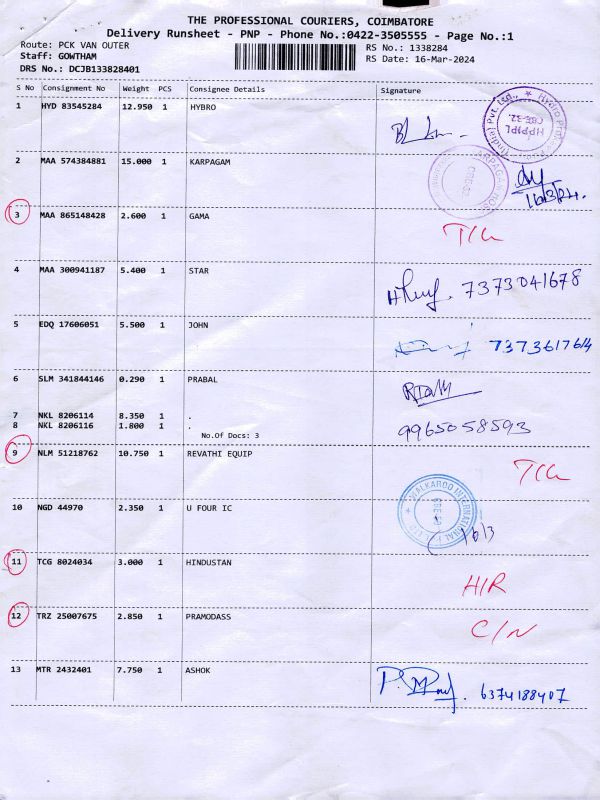 THE PROFESSIONAL COURIERS, COIMBATORE
Delivery Runsheet - PNP - Phone No.:0422-3505555 - Page No.:1
Route: PCK VAN OUTER
RS No.: 1338284
Staff: GOWTHAM
RS Date: 16-Mar-2024
DRS No.: DCJB133828401
S No Consignment No Weight PCS Consignee Details Signature
1 HYD 83545284 12.950 1 HYBRO
HPPIPL
CBE-32.
2 MAA 574384881 15.000 1 KARPAGAM
16/3/24.
3 MAA 865148428 2.600 1 GAMA
4 MAA 300941187 5.400 1 STAR
7373041678
5 EDQ 17606051 5.500 1 JOHN
737361764
6 SLM 341844146 0.290 1 PRABAL
7 NKL 8206114 8.350 1 .
8 NKL 8206116 1.800 1 .
9965058593
No.Of Docs: 3
9 NLM 51218762 10.750 1 REVATHI EQUIP
10 NGD 44970 2.350 1 U FOUR IC
WALKAROO INTERNATIONAL
16/3
11 TCG 8024034 3.000 1 HINDUSTAN
H/R
12 TRZ 25007675 2.850 1 PRAMODASS
C/N
13 MTR 2432401 7.750 1 ASHOK
6374188407